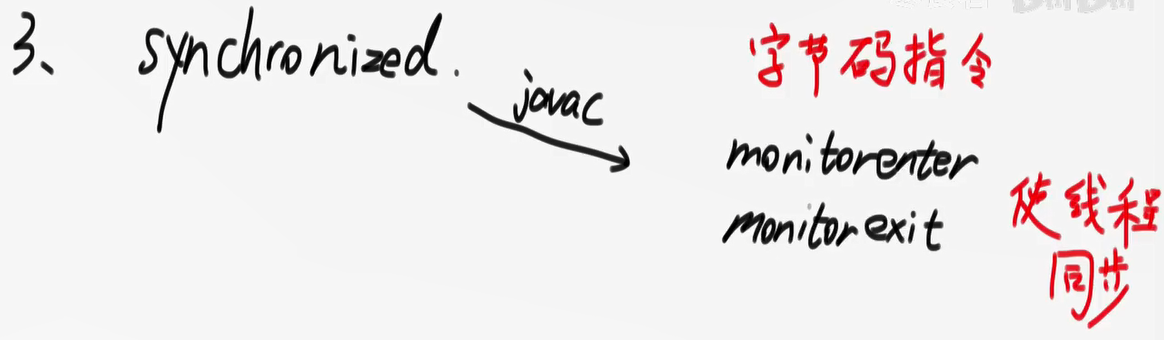 3、 synchronized.
javac
字节码指令
monitorenter
monitorexit
使线程
同步